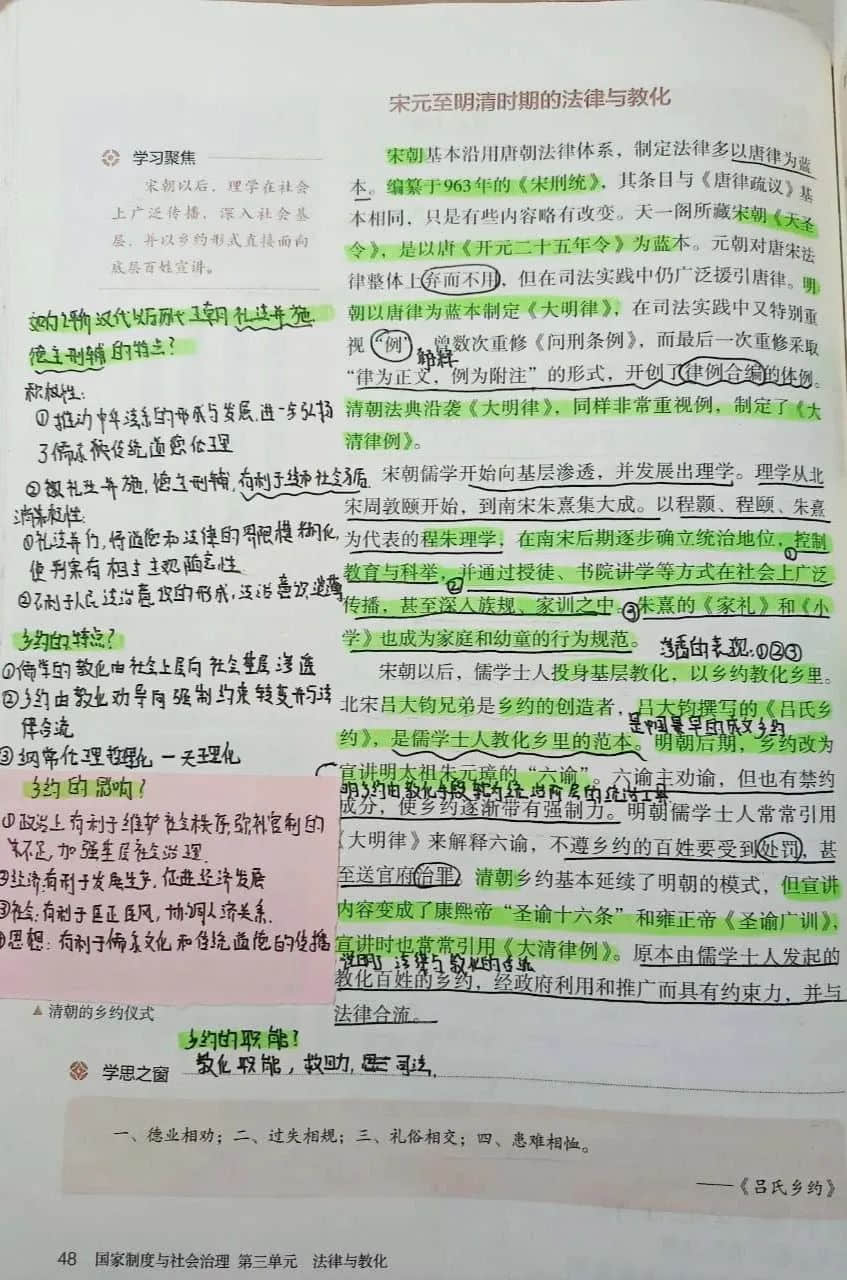 宋元至明清时期的法律与教化
学习聚焦
宋朝以后，理学在社会
上广泛传播，深入社会基
层，并以乡约形式直接面向
底层百姓宣讲。
宋朝基本沿用唐朝法律体系，制定法律多以唐律为蓝
本。编纂于963年的《宋刑统》，其条目与《唐律疏议》基
本相同，只是有些内容略有改变。天一阁所藏宋朝《天圣
令》，是以唐《开元二十五年令》为蓝本。元朝对唐宋法
律整体上弃而不用，但在司法实践中仍广泛援引唐律。明
朝以唐律为蓝本制定《大明律》，在司法实践中又特别重
视“例”，曾数次重修《问刑条例》，而最后一次重修采取
解释
“律为正文，例为附注”的形式，开创了律例合编的体例。
清朝法典沿袭《大明律》，同样非常重视例，制定了《大
清律例》。
宋朝儒学开始向基层渗透，并发展出理学。理学从北
宋周敦颐开始，到南宋朱熹集大成。以程颢、程颐、朱熹
为代表的程朱理学，在南宋后期逐步确立统治地位，①控制
教育与科举，②并通过授徒、书院讲学等方式在社会上广泛
传播，甚至深入族规、家训之中。③朱熹的《家礼》和《小
学》也成为家庭和幼童的行为规范。
渗透的表现：①②③
宋朝以后，儒学士人投身基层教化，以乡约教化乡里。
北宋吕大钧兄弟是乡约的创造者，吕大钧撰写的《吕氏乡
是中国最早的成文乡约
约》，是儒学士人教化乡里的范本。明朝后期，乡约改为
宣讲明太祖朱元璋的“六谕”。六谕主劝谕，但也有禁约
明乡约由教化手段转为统治阶层的统治工具
成分，使乡约逐渐带有强制力。明朝儒学士人常常引用
《大明律》来解释六谕，不遵乡约的百姓要受到处罚，甚
至送官府治罪。清朝乡约基本延续了明朝的模式，但宣讲
内容变成了康熙帝“圣谕十六条”和雍正帝《圣谕广训》，
宣讲时也常常引用《大清律例》。原本由儒学士人发起的
说明了法律与教化的
教化百姓的乡约，经政府利用和推广而具有约束力，并与
法律合流。
汉代以后历代王朝礼法并施
德主刑辅的特点？
积极性：
①推动中华法系的形成与发展，进一步弘扬
了儒家传统道德伦理
②礼法并施，德主刑辅，有利于社会
消极性：
①礼法并行，将道德和法律的界限模糊化，
使判案有相当主观随意性
②不利于人民法治意识的形成，法治意识淡薄
乡约的特点？
①儒学的教化由社会上层向社会基层渗透
②乡约由教化劝导向强制约束转变并与法
律合流
③纲常伦理哲理化一天理化
乡约的影响？
①政治上有利于维护社会秩序，弥补官制的
不足，加强基层社会治理.
②经济：有利于发展生产，促进经济发展
③社会：有利于匡正民风，协调人际关系.
④思想：有利于儒家文化和传统道德的传播
▲清朝的乡约仪式
乡约的职能？
教化职能，救助，司法.
学思之窗
一、德业相劝；二、过失相规；三、礼俗相交；四、患难相恤。
——《吕氏乡约》
48 国家制度与社会治理 第三单元 法律与教化